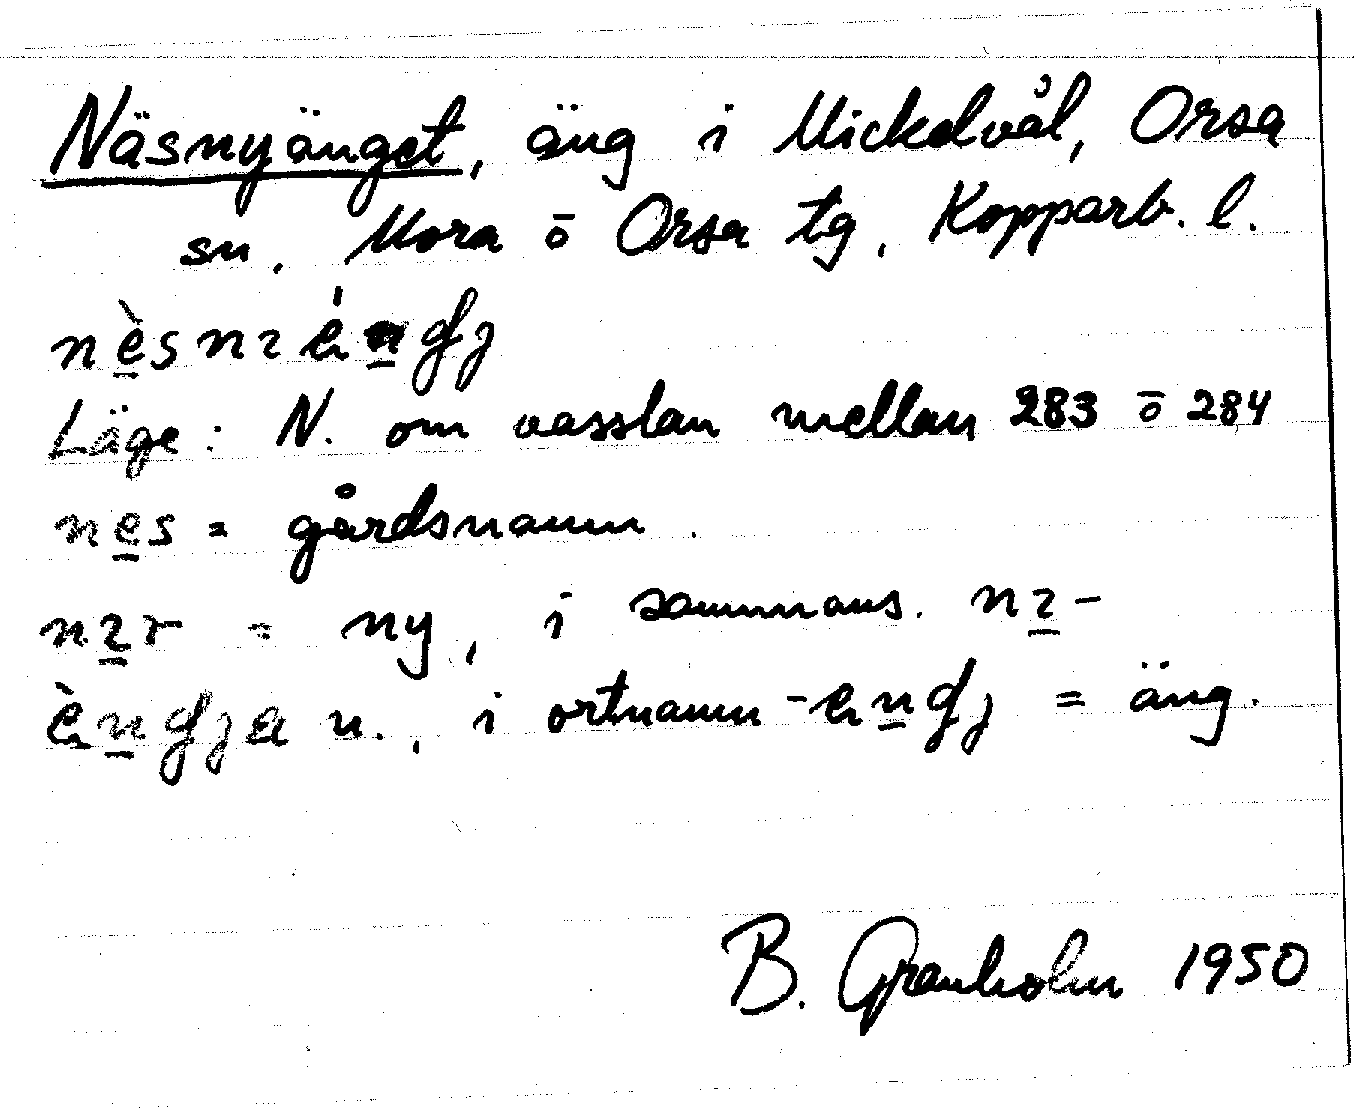 Näsnyänget, äng i Mickelvål, Orsa
sn, Mora ō Orsa tg, Kopparb. l.
Läge: N. om vasslan mellan 283 ō 284
nes = gårdsnamn.
= ny, i sammans.
n., i ortnamn = äng.
B. Granholm 1950